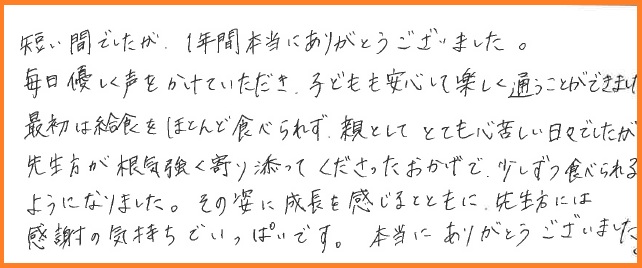 短い間でしたが、1年間本当にありがとうございました。
毎日優しく声をかけていただき、子どもも安心して楽しく通うことができまし
最初は給食をほとんど食べられず、親としてとても心苦しい日々でしたが
先生方が根気強く寄り添ってくださったおかげで、少しずつ食べられる
ようになりました。その姿に成長を感じるとともに、先生方には
感謝の気持ちでいっぱいです。本当にありがとうございました。